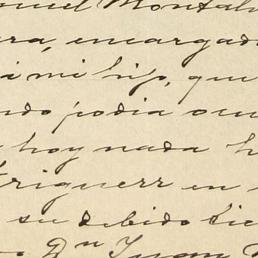 nuel Montal
era, encargad
a mi hijo, que
ndo podia ocu
hoy nada h
Friguerr en
su debido tie
Dn Juan